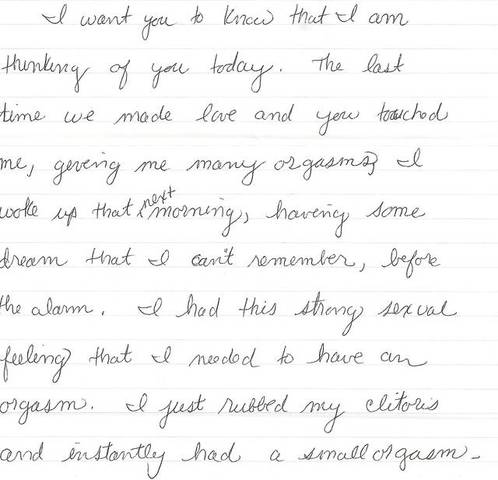 I want you to know that I am
thinking of you today. The last
time we made love and you touched
me, geveing me many orgasms, I
woke up that next morning, haveing some
dream that I can't remember, before
the alarm. I had this strong sexual
feeling that I needed to have an
orgasm. I just rubbed my clitoris
and instantly had a small orgasm -